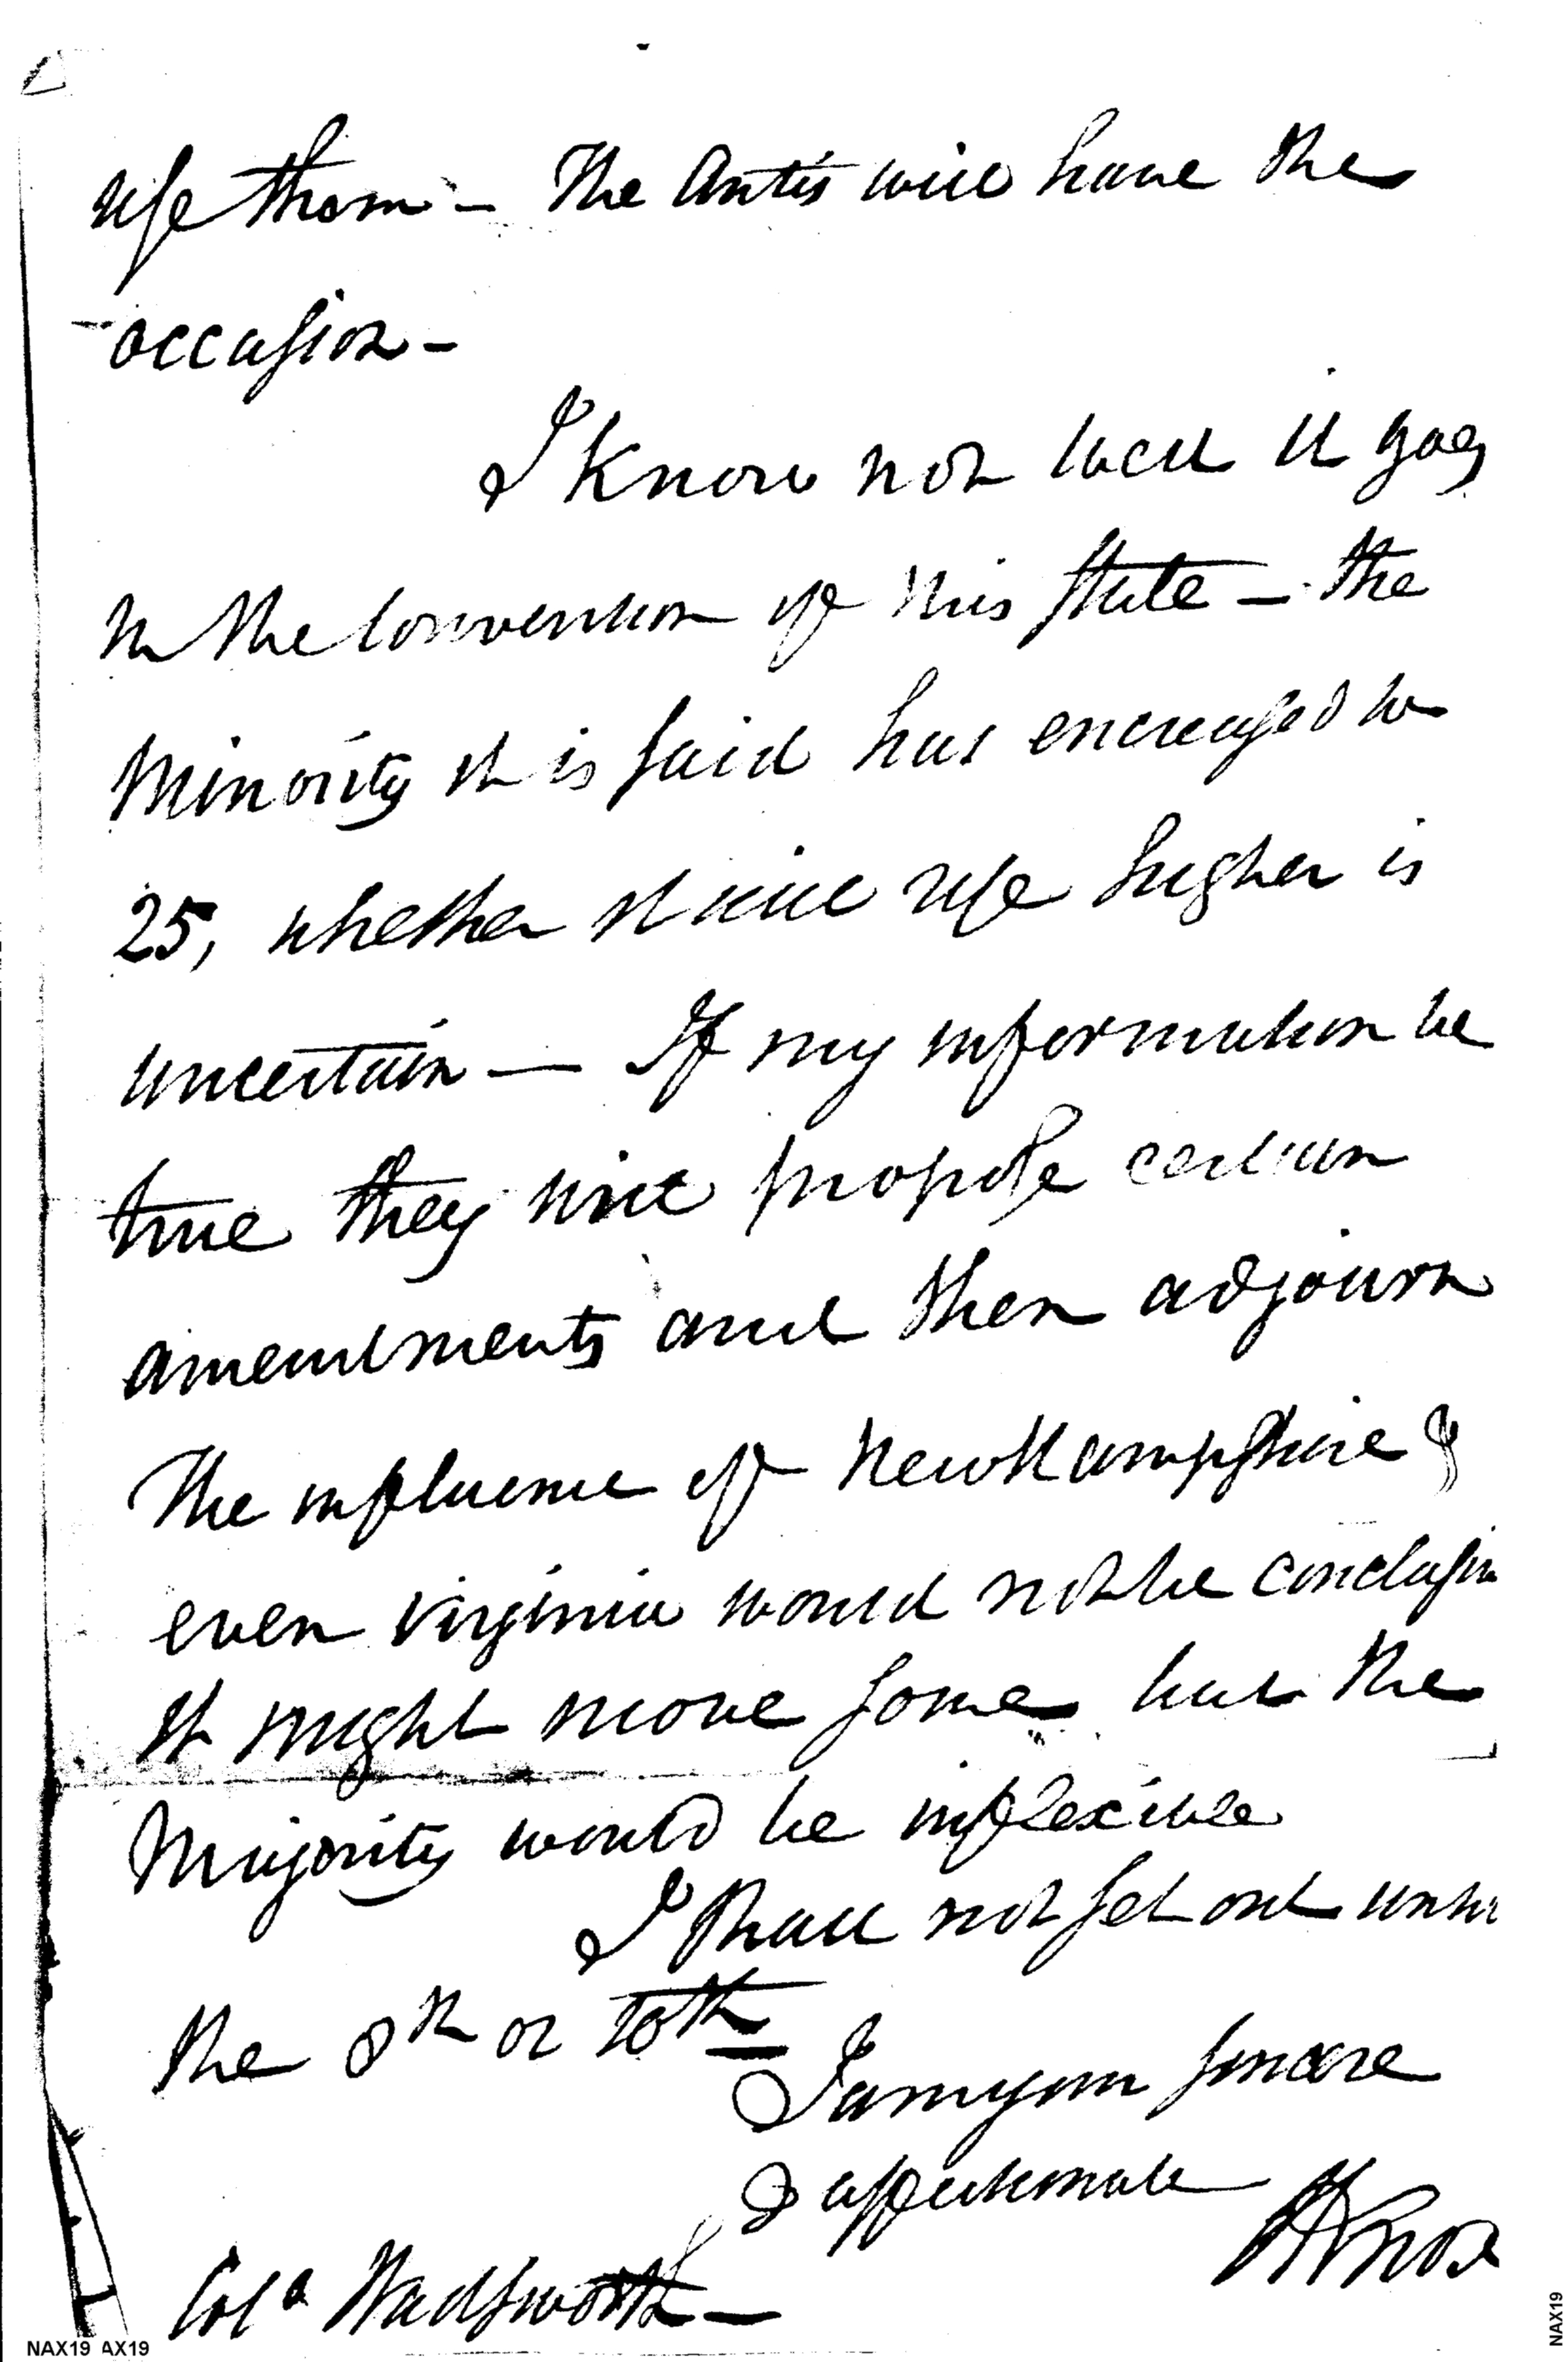 use them – The Antis will have the
occasion –
I know not well it goes
in the Convention of this state – the
Minority it is said has encreased to
25, whether it will rise higher is
uncertain – If my information be
true they will propose certain
amendments and then adjourn
The influence of New Hampshire &
even Virginia would not be conclusive
It might move some but the
Majority would be inflexible
I shall not set out until
the 8th or 10th
I am your sincere
& affectionate
HKnox
Colo Wadsworth –
NAX19 AX19
NAX19